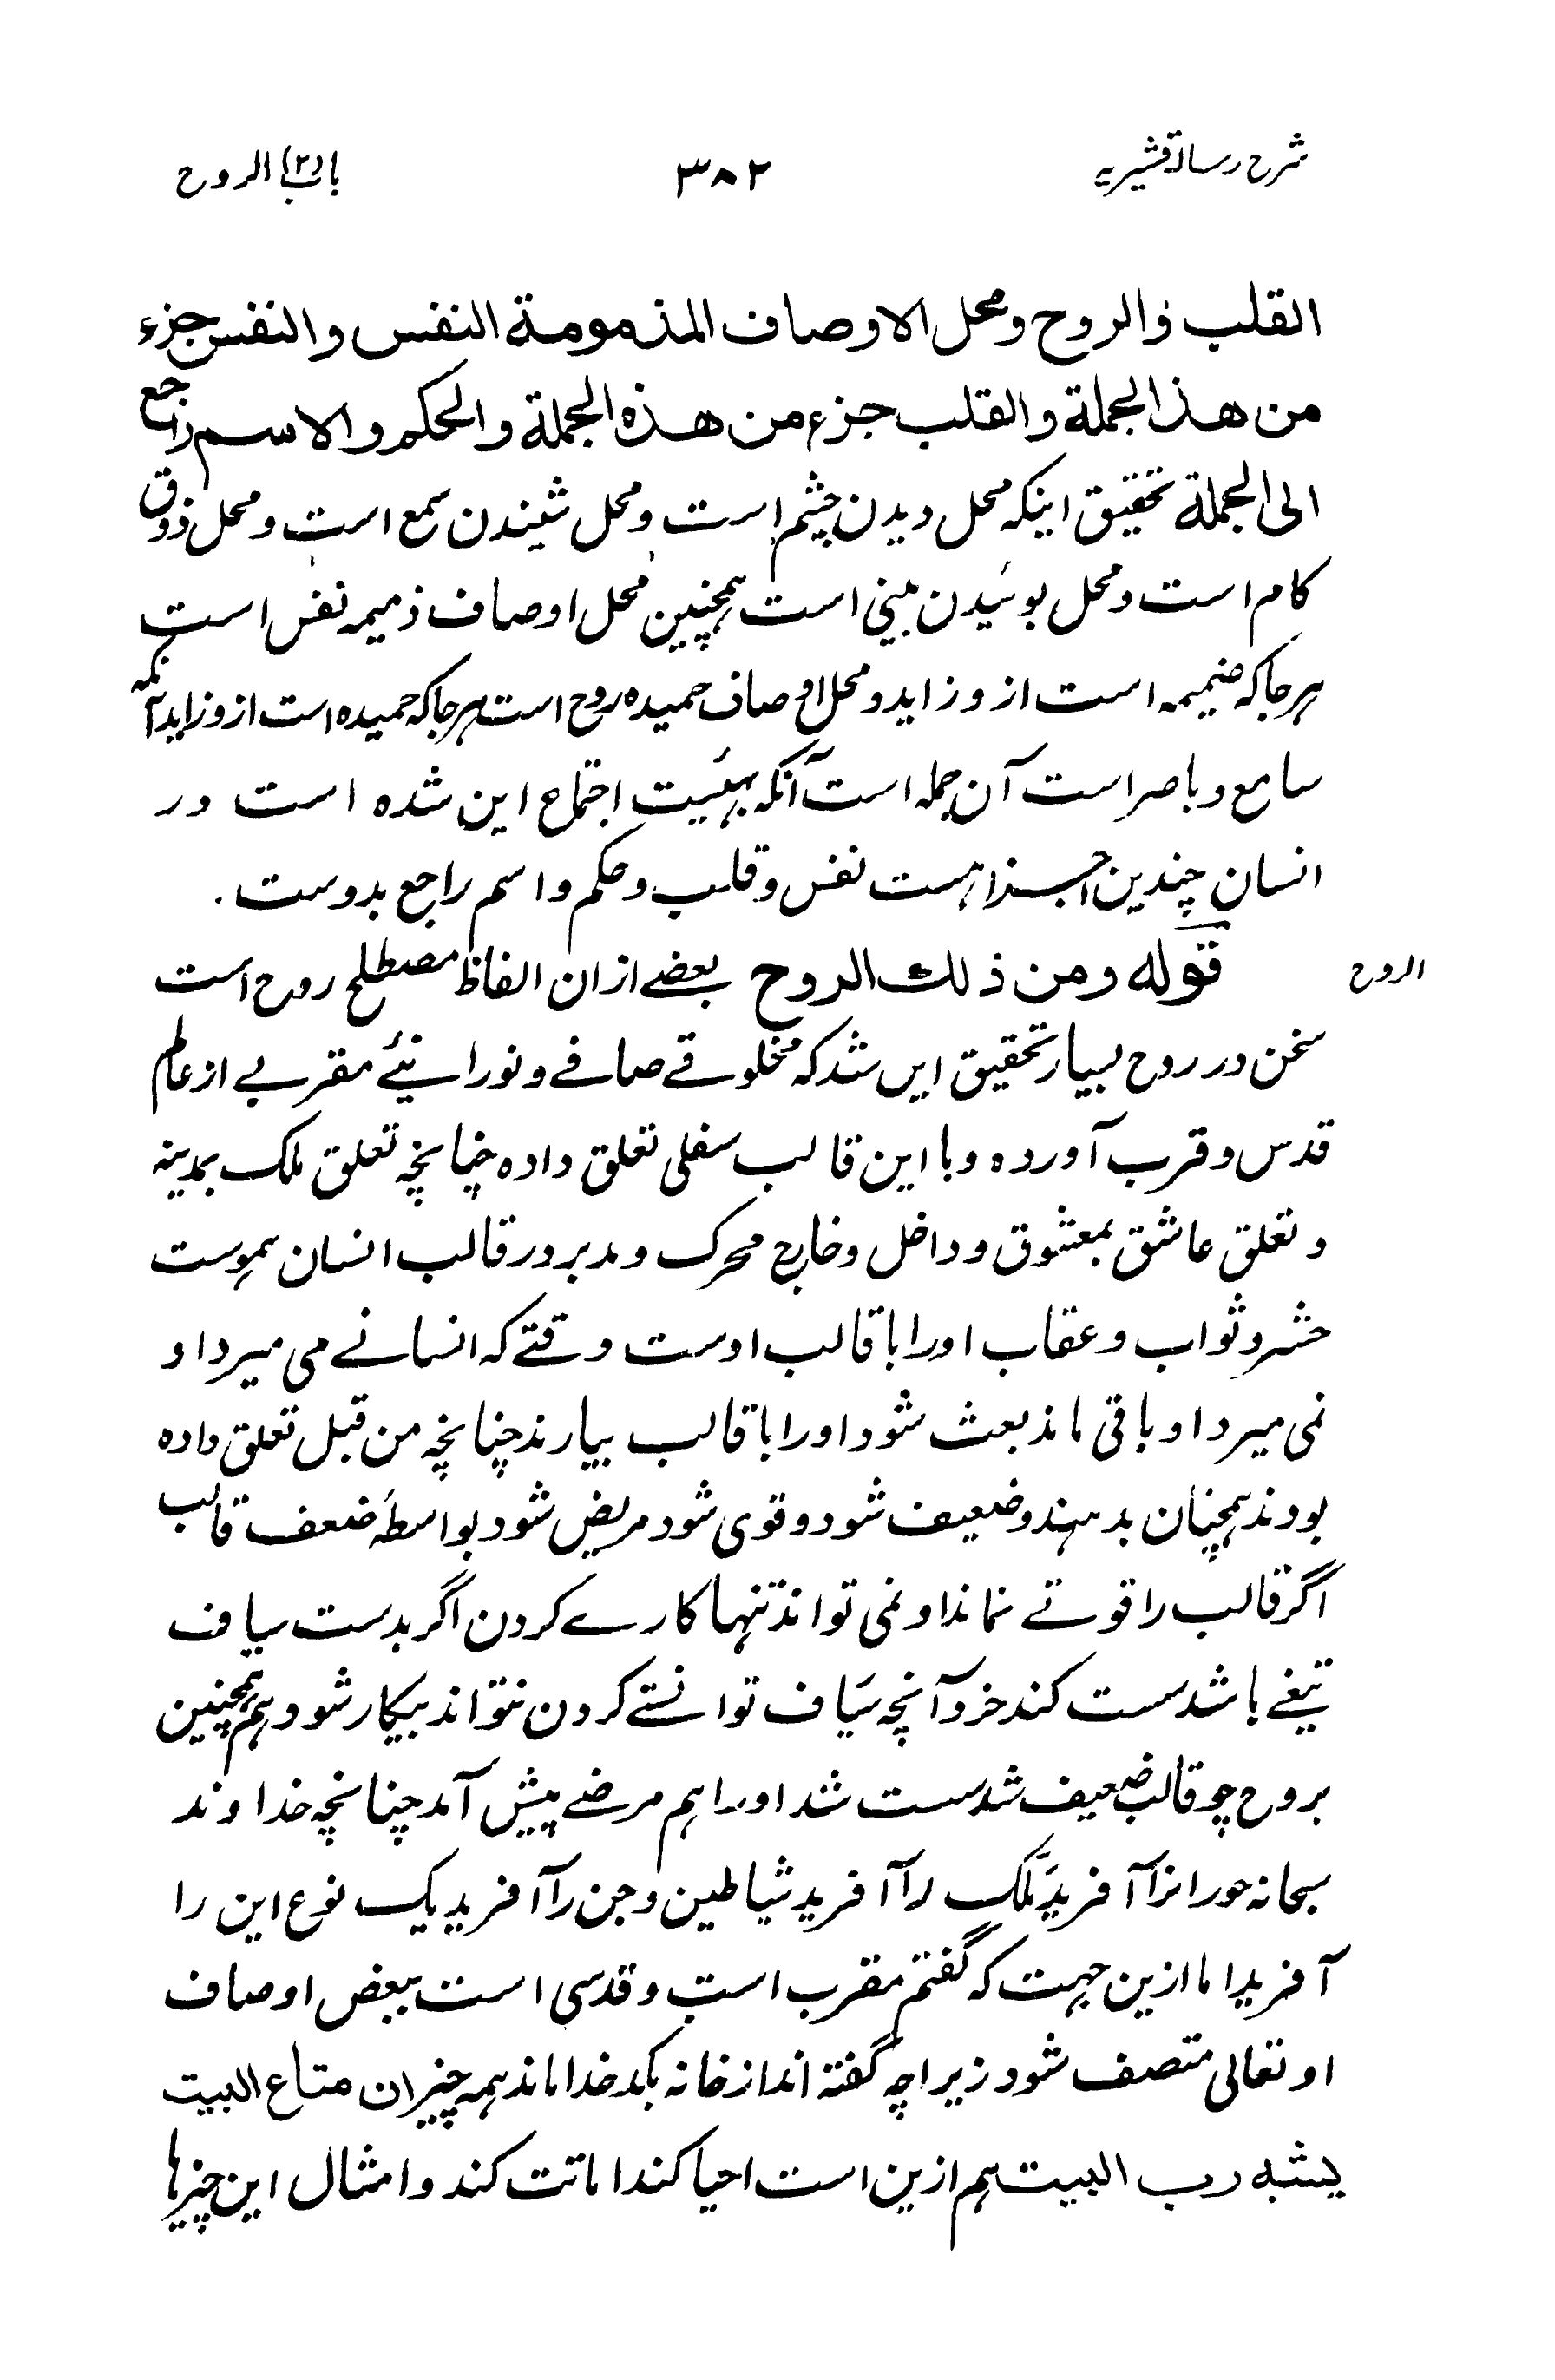 شرح رسالۂ قشیریہ
۳۸۲
باب (۲) الروح
القلب والروح ومحل الاوصاف المذمومة النفس والنفس جزء
من هذا الجملة والقلب جزء من هذه الجملة والحكم والاسم راجع
الى الجملة تحقیق اینکہ محل دیدن چشم است ومحل شنیدن سمع است ومحل ذوق
کام است ومحل بوئیدن بینی است ہمچنین محل اوصاف ذمیمہ نفس است
ہرجا کہ ضمیمہ است از و زاید ومحل اوصاف حمیدہ روح است ہرجا کہ حمیدہ است از و زاید آنکہ
سامع وباصر است آن جملہ است آنکہ بہیئت اجتماع این شدہ است در
انسان چندین اجزا ہست نفس وقلب وحکم واسم راجع بدوست .
الروح
قوله ومن ذلك الروح بعضے ازان الفاظ مصطلح روح است
سخن در روح بسیار تحقیق ایں شد کہ مخلوقے صافے و نورانئے مقربے از عالم
قدس وقرب آوردہ وبا این قالب سفلی تعلق دادہ چنانچہ تعلق ملک بمدینہ
وتعلق عاشق بمعشوق وداخل وخارج محرک ومدبر در قالب انسان ہموست
حشر وثواب وعقاب اورا با قالب اوست وقتے کہ انسانے می میرد او
نمی میرد او باقی ماند بعث شود اورا با قالب بیارند چنانچہ من قبل تعلق دادہ
بودند ہمچنان بدہند وضعیف شود وقوی شود مریض شود بواسطۂ ضعف قالب
اگر قالب را قوتے نماند او نمی تواند تنہا کارے کردن اگر بدست سیاف
تیغے باشد سست کند خرد آنچہ سیاف توانستے کردن نتواند بیکار شود وہم ہمچنین
بروح چو قالب ضعیف شد سست شد اورا ہم مرضے پیش آمد چنانچہ خداوند
سبحانہ حورانرا آفرید ملک را آفرید شیاطین وجن را آفرید یک نوع این را
آفرید اما ازین جہت کہ گفتم مقرب است وقدسی است ببعض اوصاف
او تعالی متصف شود زیراچہ گفتہ اند از خانہ بکدخدا ماند ہمہ چیزان متاع البیت
یشبہ رب البیت ہم ازین است احیا کند اماتت کند وامثال این چیزہا